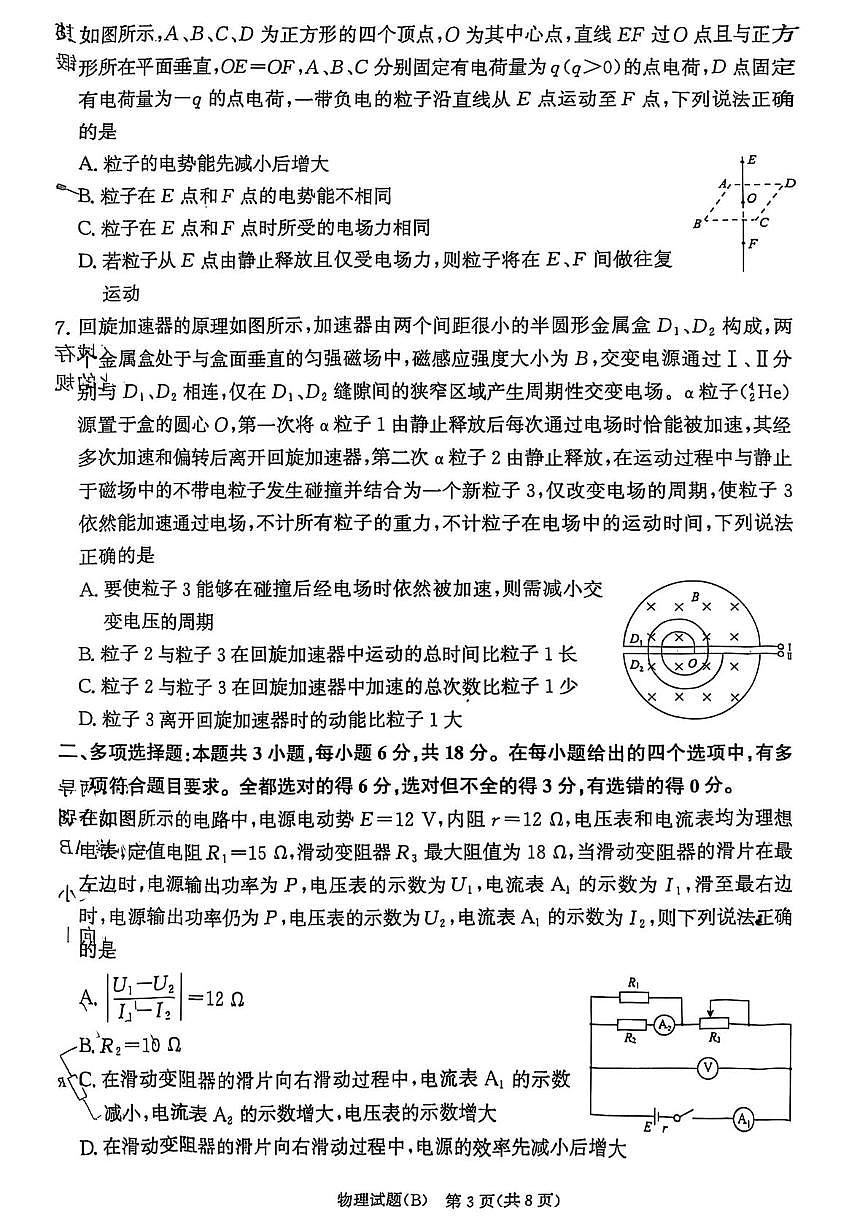 如图所示,A、B、C、D 为正方形的四个顶点,O 为其中心点,直线 EF 过O 点且与正方
形所在平面垂直,OE=OF,A、B、C 分别固定有电荷量为 q(q>0)的点电荷,D 点固定
有电荷量为一q 的点电荷,一带负电的粒子沿直线从 E 点运动至 F 点,下列说法正确
的是
A. 粒子的电势能先减小后增大
B. 粒子在 E 点和 F 点的电势能不相同
C. 粒子在 E 点和 F 点时所受的电场力相同
D. 若粒子从 E 点由静止释放且仅受电场力,则粒子将在 E、F 间做往复
运动
E
A
D
O
B
C
F
7. 回旋加速器的原理如图所示,加速器由两个间距很小的半圆形金属盒 D₁、D₂ 构成,两
个金属盒处于与盒面垂直的匀强磁场中,磁感应强度大小为 B,交变电源通过 Ⅰ、Ⅱ 分
别与 D₁、D₂ 相连,仅在 D₁、D₂ 缝隙间的狭窄区域产生周期性交变电场。α 粒子(⁴₂He)
源置于盒的圆心 O,第一次将 α 粒子 1 由静止释放后每次通过电场时恰能被加速,其经
多次加速和偏转后离开回旋加速器,第二次 α 粒子 2 由静止释放,在运动过程中与静止
于磁场中的不带电粒子发生碰撞并结合为一个新粒子 3,仅改变电场的周期,使粒子 3
依然能加速通过电场,不计所有粒子的重力,不计粒子在电场中的运动时间,下列说法
正确的是
A. 要使粒子 3 能够在碰撞后经电场时依然被加速,则需减小交
变电压的周期
B. 粒子 2 与粒子 3 在回旋加速器中运动的总时间比粒子 1 长
C. 粒子 2 与粒子 3 在回旋加速器中加速的总次数比粒子 1 少
D. 粒子 3 离开回旋加速器时的动能比粒子 1 大
B
D₁
D₂
O
Ⅰ
Ⅱ
二、多项选择题:本题共 3 小题,每小题 6 分,共 18 分。在每小题给出的四个选项中,有多
项符合题目要求。全都选对的得 6 分,选对但不全的得 3 分,有选错的得 0 分。
在如图所示的电路中,电源电动势 E=12 V,内阻 r=12 Ω,电压表和电流表均为理想
电表,定值电阻 R₁=15 Ω,滑动变阻器 R₃ 最大阻值为 18 Ω,当滑动变阻器的滑片在最
左边时,电源输出功率为 P,电压表的示数为 U₁,电流表 A₁ 的示数为 I₁,滑至最右边
时,电源输出功率仍为 P,电压表的示数为 U₂,电流表 A₁ 的示数为 I₂,则下列说法正确
的是
A. |(U₁-U₂)/(I₁-I₂)|=12 Ω
B. R₂=10 Ω
C. 在滑动变阻器的滑片向右滑动过程中,电流表 A₁ 的示数
减小,电流表 A₂ 的示数增大,电压表的示数增大
D. 在滑动变阻器的滑片向右滑动过程中,电源的效率先减小后增大
R₁
R₂
A₂
R₃
V
E
r
A₁
物理试题(B) 第 3 页(共 8 页)